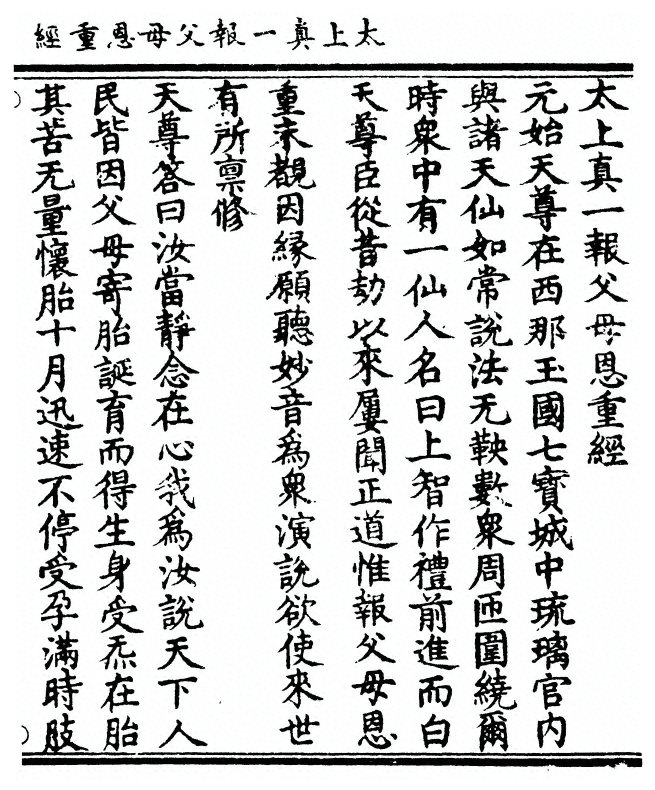 太上真一報父母恩重經
太上真一報父母恩重經
元始天尊在西那玉國七寳城中琉璃宫内
與諸天仙如常說法无鞅數衆周匝圍繞爾
時衆中有一仙人名曰上智作禮前進而白
天尊臣從昔劫以來屢聞正道惟報父母恩
重未覩因緣願聽妙音為衆演說欲使來世
有所禀修
天尊答曰汝當靜念在心我為汝說天下人
民皆因父母寄胎誕育而得生身受炁在胎
其苦无量懷胎十月迅速不停受孕滿時肢